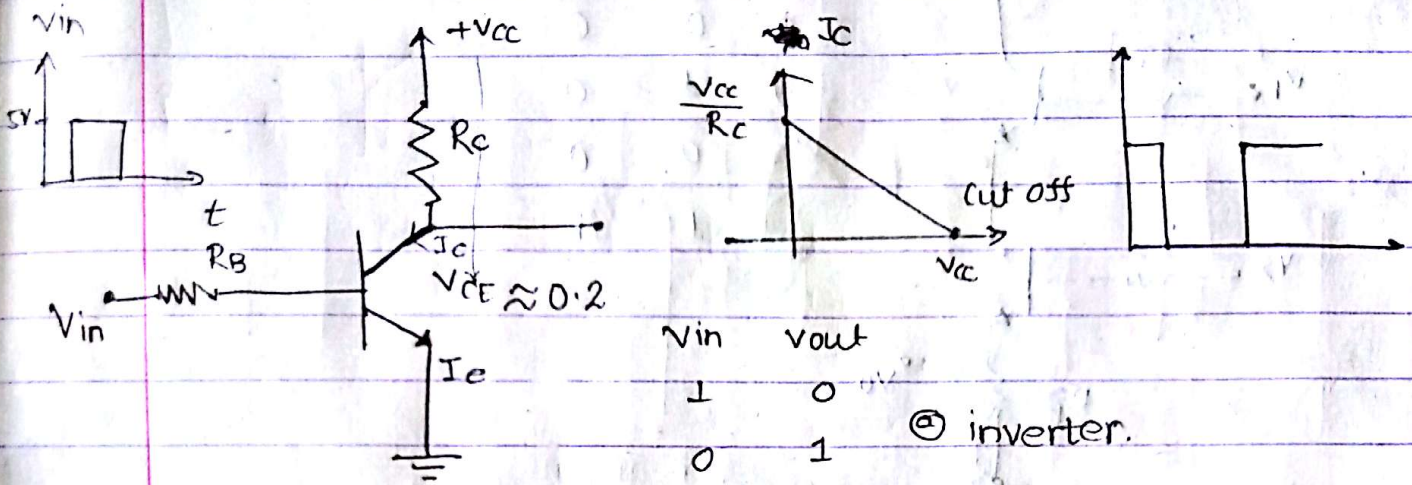 Vin
5V
t
+VCC
RC
IC
VCE ≈ 0.2
RB
Vin
Ie
IC
VCC
RC
Cut Off
VCC
Vin Vout
1 0
0 1
@ inverter.